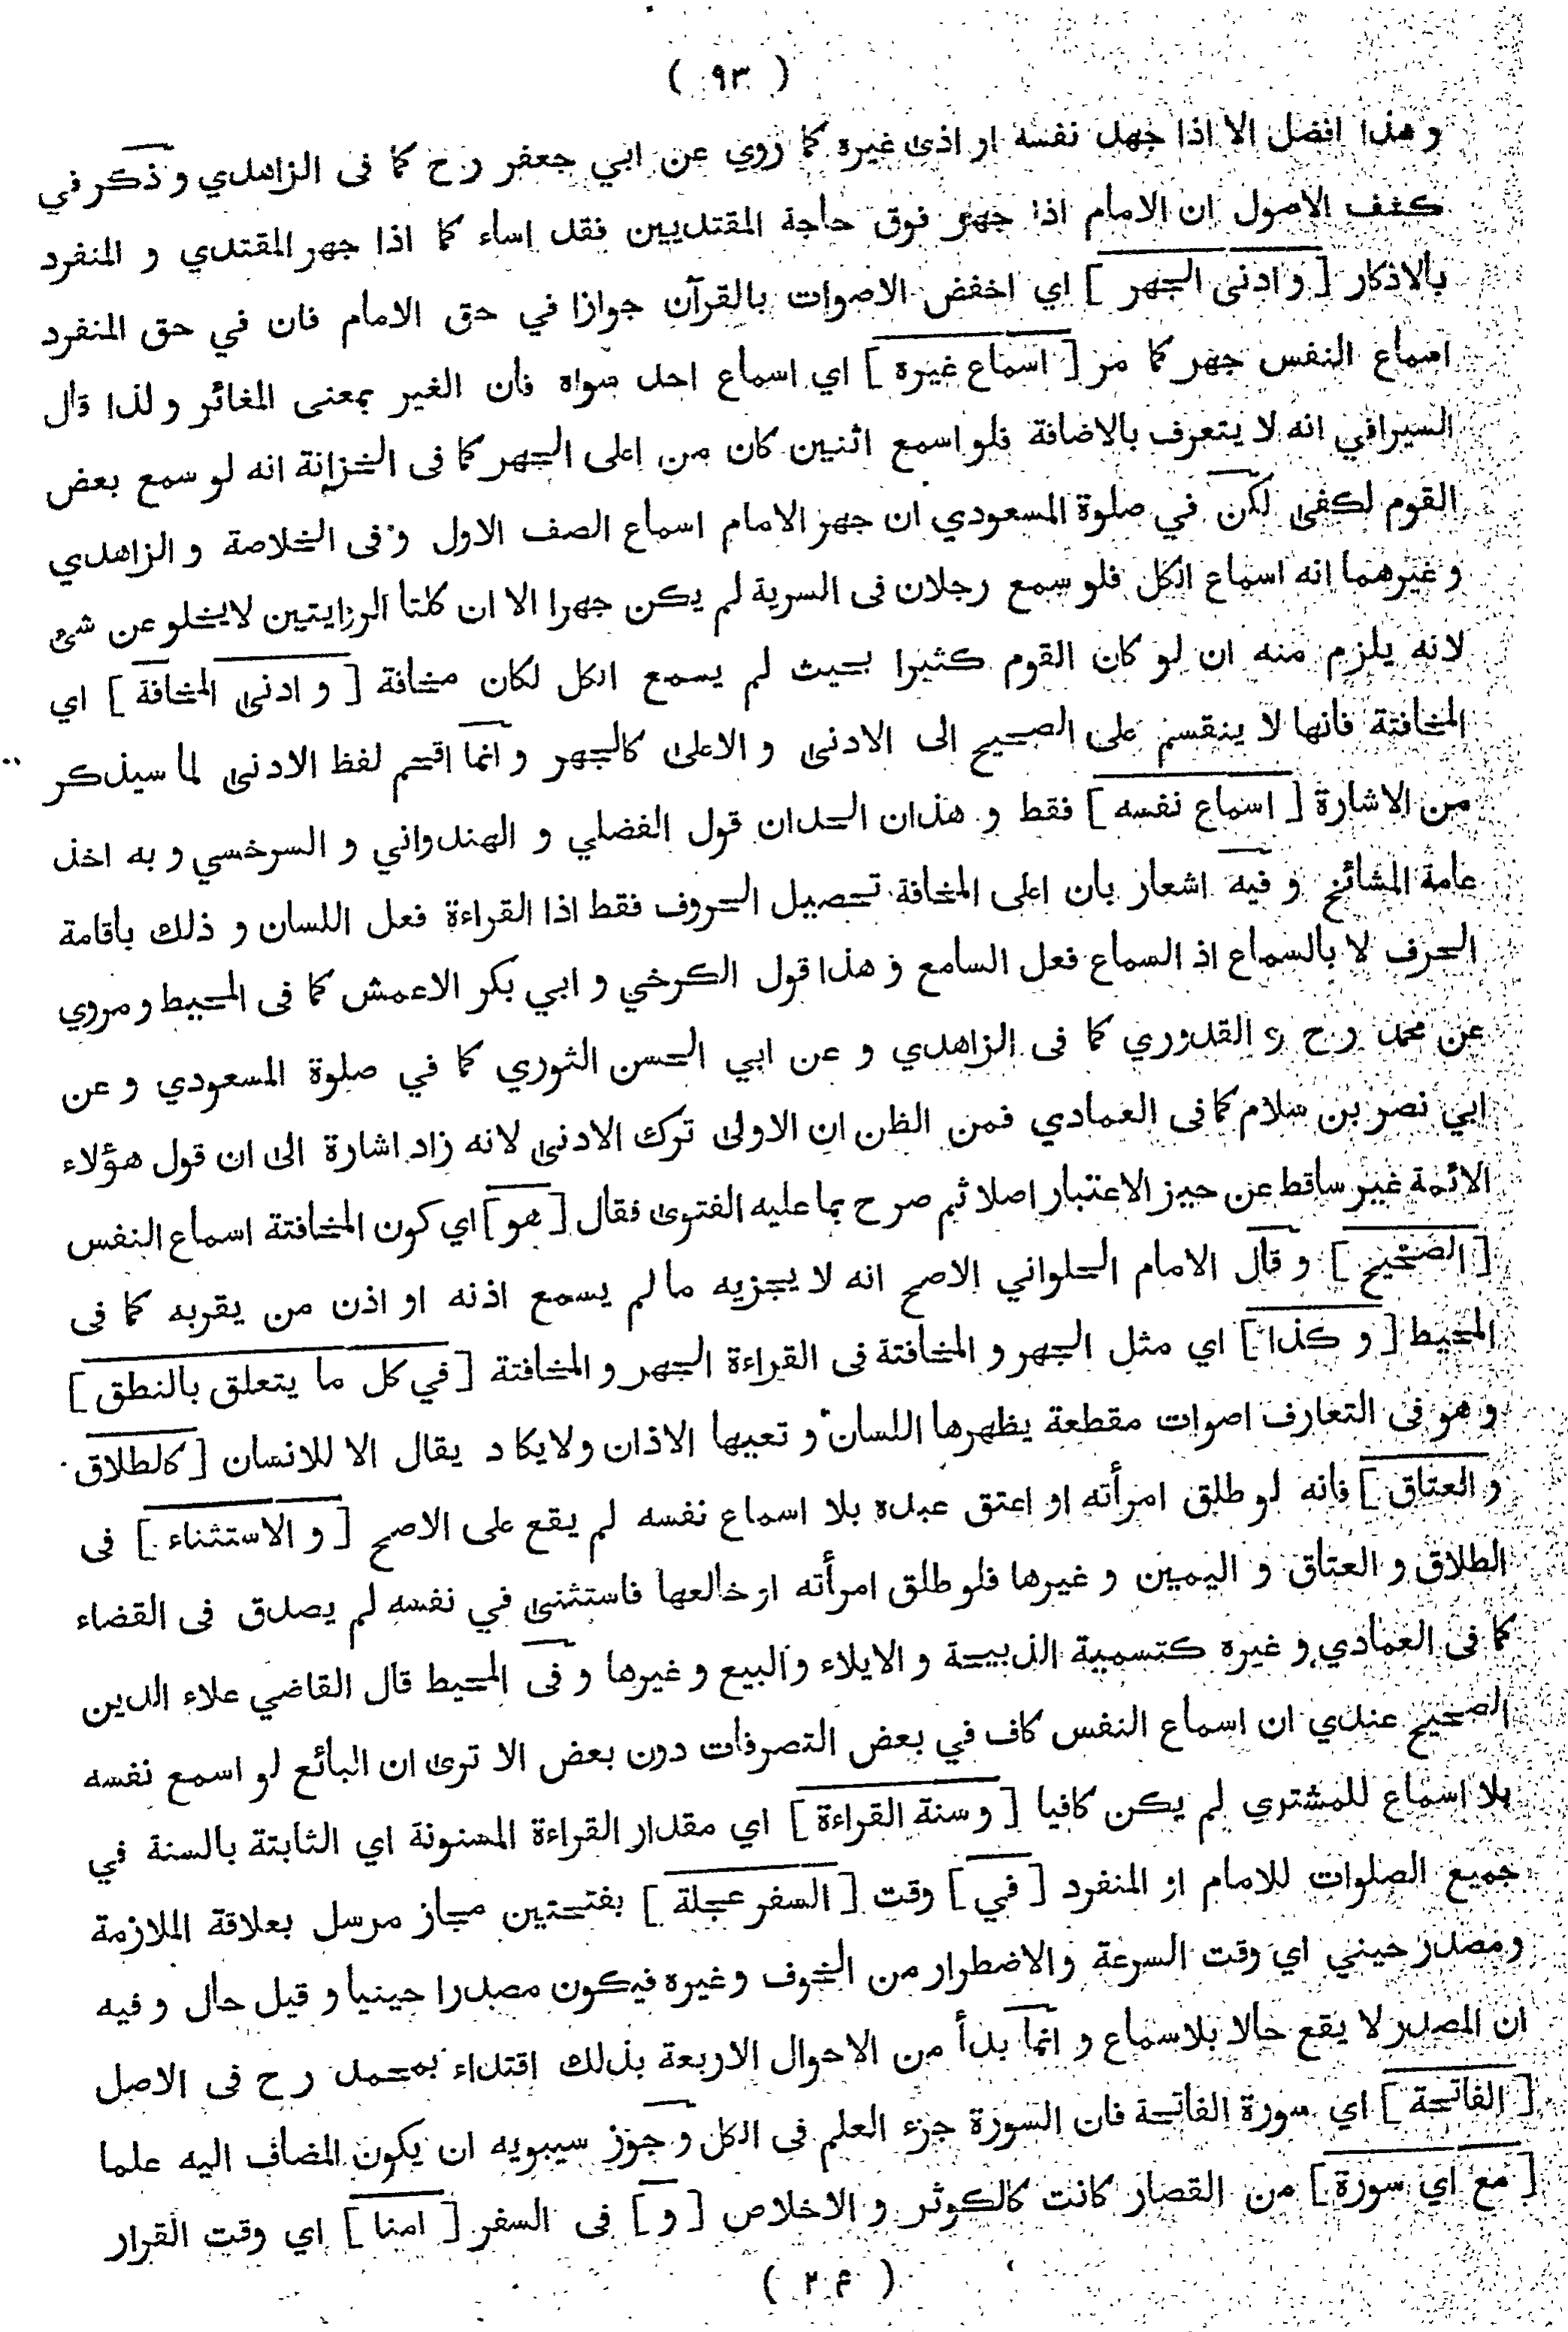 ( ٩٣ )
و هذا افضل الا اذا جهد نفسه او اذى غيره كما روي عن ابي جعفر رح كما فى الزاهدي و ذكر في
كشف الاصول ان الامام اذا جهر فوق حاجة المقتديين فقد اساء كما اذا جهر المقتدي و المنفرد
بالاذكار [ و ادنى الجهر ] اي اخفض الاصوات بالقرآن جوازا في حق الامام فان في حق المنفرد
اسماع النفس جهر كما مر [ اسماع غيره ] اي اسماع احد سواه فان الغير بمعنى المغائر و لذا قال
السيرافي انه لا يتعرف بالاضافة فلو اسمع اثنين كان من اعلى الجهر كما فى الخزانة انه لو سمع بعض
القوم لكفى لكن في صلوة المسعودي ان جهر الامام اسماع الصف الاول و فى الخلاصة و الزاهدي
و غيرهما انه اسماع الكل فلو سمع رجلان فى السرية لم يكن جهرا الا ان كلتا الروايتين لايخلو عن شئ
لانه يلزم منه ان لو كان القوم كثيرا بحيث لم يسمع الكل لكان مخافة [ و ادنى المخافة ] اي
المخافتة فانها لا ينقسم على الصحيح الى الادنى و الاعلى كالجهر و انما اقحم لفظ الادنى لما سيذكر
من الاشارة [ اسماع نفسه ] فقط و هذان الحدان قول الفضلي و الهندواني و السرخسي و به اخذ
عامة المشائخ و فيه اشعار بان اعلى المخافة تحصيل الحروف فقط اذا القراءة فعل اللسان و ذلك باقامة
الحرف لا بالسماع اذ السماع فعل السامع و هذا قول الكرخي و ابي بكر الاعمش كما فى المحيط و مروي
عن محمد رح و القدوري كما فى الزاهدي و عن ابي الحسن الثوري كما في صلوة المسعودي و عن
ابي نصر بن سلام كما فى العمادي فمن الظن ان الاولى ترك الادنى لانه زاد اشارة الى ان قول هؤلاء
الائمة غير ساقط عن حيز الاعتبار اصلا ثم صرح بما عليه الفتوى فقال [ هو ] اي كون المخافتة اسماع النفس
[ الصحيح ] و قال الامام الحلواني الاصح انه لا يجزيه ما لم يسمع اذنه او اذن من يقربه كما فى
المحيط [ و كذا ] اي مثل الجهر و المخافتة فى القراءة الجهر و المخافتة [ في كل ما يتعلق بالنطق ]
و هو فى التعارف اصوات مقطعة يظهرها اللسان و تعيها الاذان ولايكاد يقال الا للانسان [ كالطلاق
و العتاق ] فانه لو طلق امرأته او اعتق عبده بلا اسماع نفسه لم يقع على الاصح [ و الاستثناء ] فى
الطلاق و العتاق و اليمين و غيرها فلو طلق امرأته او خالعها فاستثنى في نفسه لم يصدق فى القضاء
كما فى العمادي و غيره كتسمية الذبيحة و الايلاء و البيع و غيرها و فى المحيط قال القاضي علاء الدين
الصحيح عندي ان اسماع النفس كاف في بعض التصرفات دون بعض الا ترى ان البائع لو اسمع نفسه
بلا اسماع للمشتري لم يكن كافيا [ و سنة القراءة ] اي مقدار القراءة المسنونة اي الثابتة بالسنة في
جميع الصلوات للامام او المنفرد [ في ] وقت [ السفر عجلة ] بفتحتين مجاز مرسل بعلاقة الملازمة
ومصدر حيني اي وقت السرعة والاضطرار من الخوف وغيره فيكون مصدرا حينيا و قيل حال و فيه
ان المصدر لا يقع حالا بلاسماع و انما بدأ من الاحوال الاربعة بذلك اقتداء بمحمد رح فى الاصل
[ الفاتحة ] اي سورة الفاتحة فان السورة جزء العلم فى الكل و جوز سيبويه ان يكون المضاف اليه علما
[ مع اي سورة ] من القصار كانت كالكوثر و الاخلاص [ و ] فى السفر [ امنا ] اي وقت القرار
( ٢٤ )